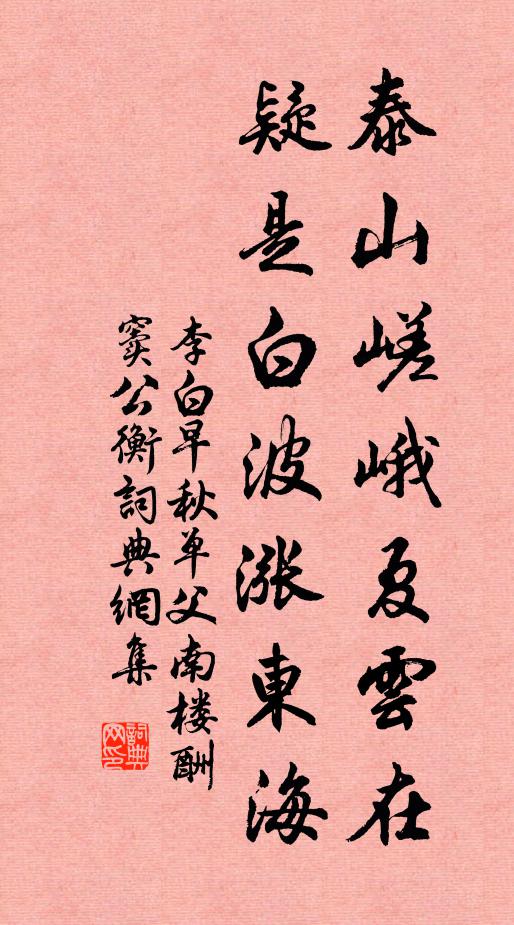 泰山嵯峨夏雲在
疑是白波漲東海
李白早秋单父南楼酬
竇公衡詞典網集
詞典網印